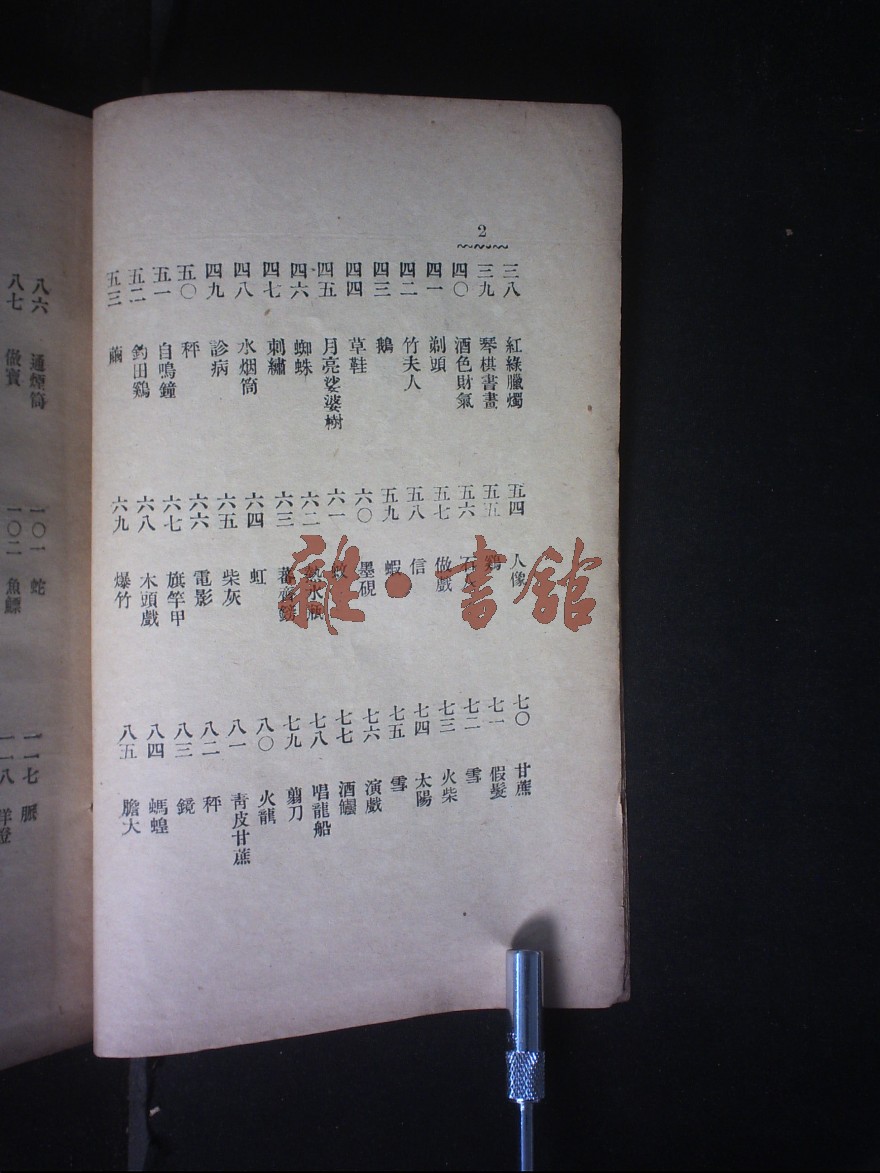 2
三八 紅綠臘燭
三九 琴棋書畫
四〇 酒色財氣
四一 剃頭
四二 竹夫人
四三 鵝
四四 草鞋
四五 月亮娑婆樹
四六 蜘蛛
四七 刺繡
四八 水烟筒
四九 診病
五〇 秤
五一 自鳴鐘
五二 釣田鷄
五三 繭
五四 人像
五五 鷄
五六
五七 做戲
五八 信
五九 蝦
六〇 墨硯
六一
六二 熱水瓶
六三
六四 虹
六五 柴灰
六六 電影
六七 旗竿甲
六八 木頭戲
六九 爆竹
七〇 甘蔗
七一 假髮
七二 雪
七三 火柴
七四 太陽
七五 雪
七六 演戲
七七 酒
七八 唱龍船
七九 剪刀
八〇
八一 青皮甘蔗
八二 秤
八三 鏡
八四 螞蝗
八五 膽大
八六 通煙筒
八七 做寶
一〇一 蛇
一〇二 魚鰾
一一七 脈
一一八 洋燈
雜·書館